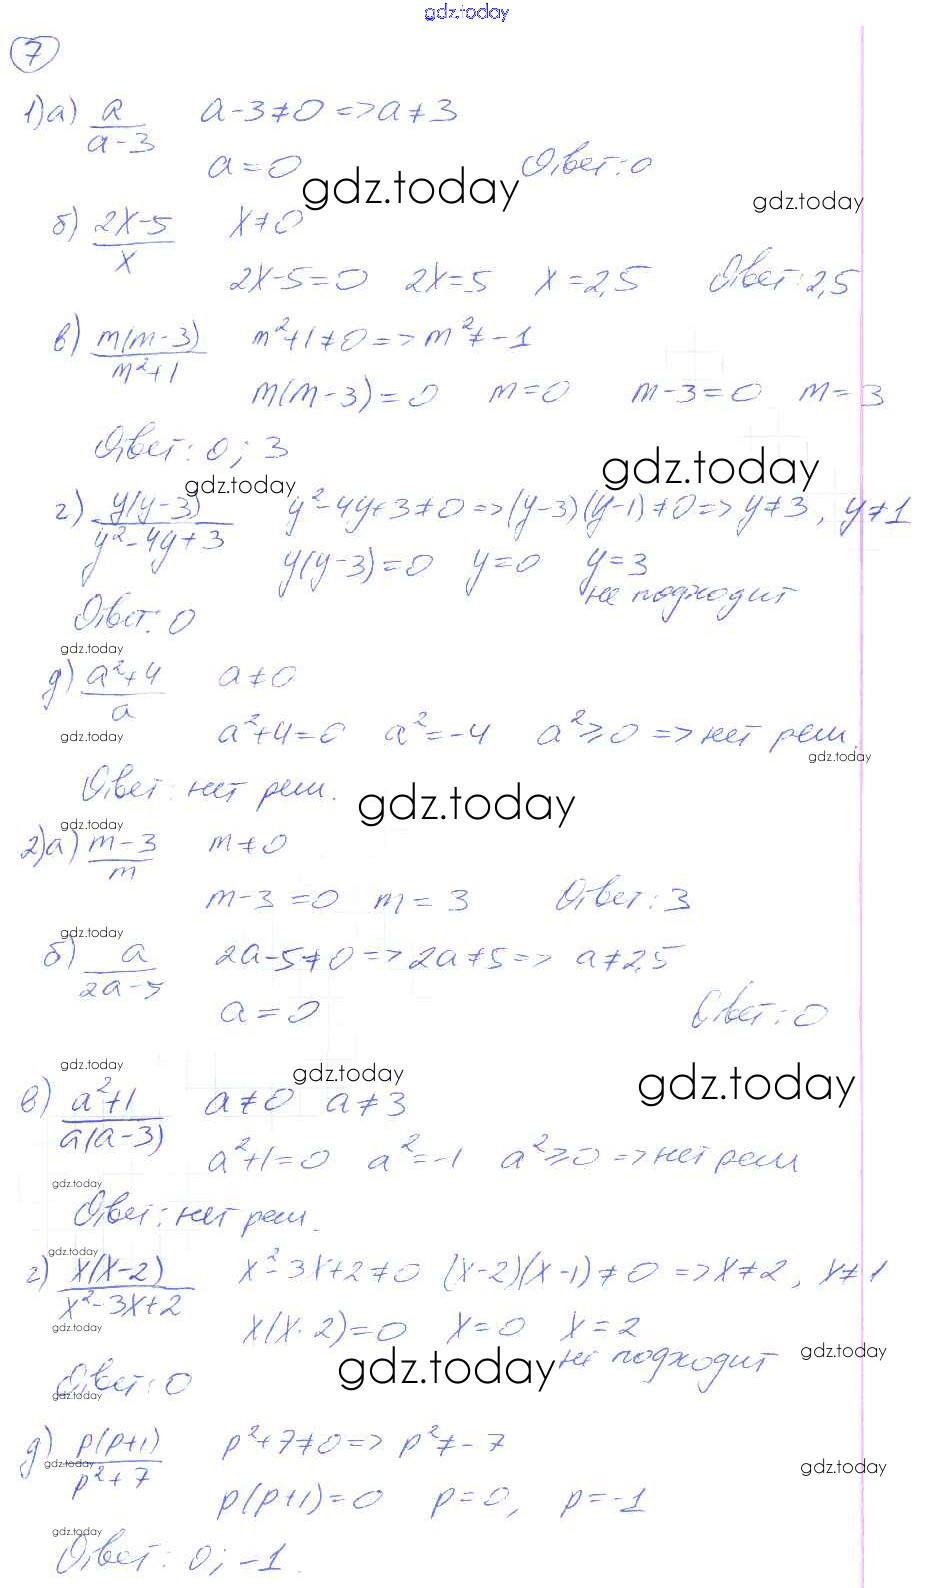 gdz.today
7
1)а) a/(a-3) a-3≠0 => a≠3
a=0 Ответ: 0
gdz.today
gdz.today
б) (2x-5)/x x≠0
2x-5=0 2x=5 x=2,5 Ответ: 2,5
в) m(m-3)/(m²+1) m²+1≠0 => m²≠-1
m(m-3)=0 m=0 m-3=0 m=3
Ответ: 0; 3
gdz.today
gdz.today
г) y(y-3)/(y²-4y+3) y²-4y+3≠0 => (y-3)(y-1)≠0 => y≠3, y≠1
y(y-3)=0 y=0 y=3
не подходит
Ответ: 0
gdz.today
д) (a²+4)/a a≠0
gdz.today
a²+4=0 a²=-4 a²≥0 => нет реш.
gdz.today
Ответ: нет реш.
gdz.today
gdz.today
2)а) (m-3)/m m≠0
m-3=0 m=3 Ответ: 3
gdz.today
б) a/(2a-5) 2a-5≠0 => 2a≠5 => a≠2,5
a=0 Ответ: 0
gdz.today
gdz.today
gdz.today
в) (a²+1)/(a(a-3)) a≠0 a≠3
a²+1=0 a²=-1 a²≥0 => нет реш
gdz.today
Ответ: нет реш.
gdz.today
г) x(x-2)/(x²-3x+2) x²-3x+2≠0 (x-2)(x-1)≠0 => x≠2, x≠1
gdz.today
x(x-2)=0 x=0 x=2
не подходит
gdz.today
gdz.today
Ответ: 0
gdz.today
д) p(p+1)/(p²+7) p²+7≠0 => p²≠-7
gdz.today
gdz.today
p(p+1)=0 p=0, p=-1
gdz.today
Ответ: 0; -1.